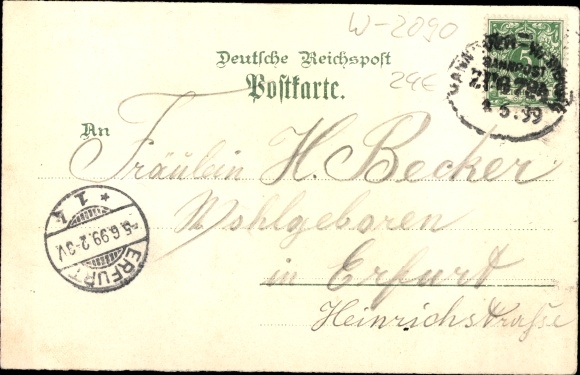 W-2090
Deutsche Reichspost
Postkarte.
24€
BAHNPOST
5.99
An
Fräulein H. Becker
Wohlgeboren
in Erfurt
Heinrichstraße
* 1. k
5.6.99.2-3V.
ERFURT